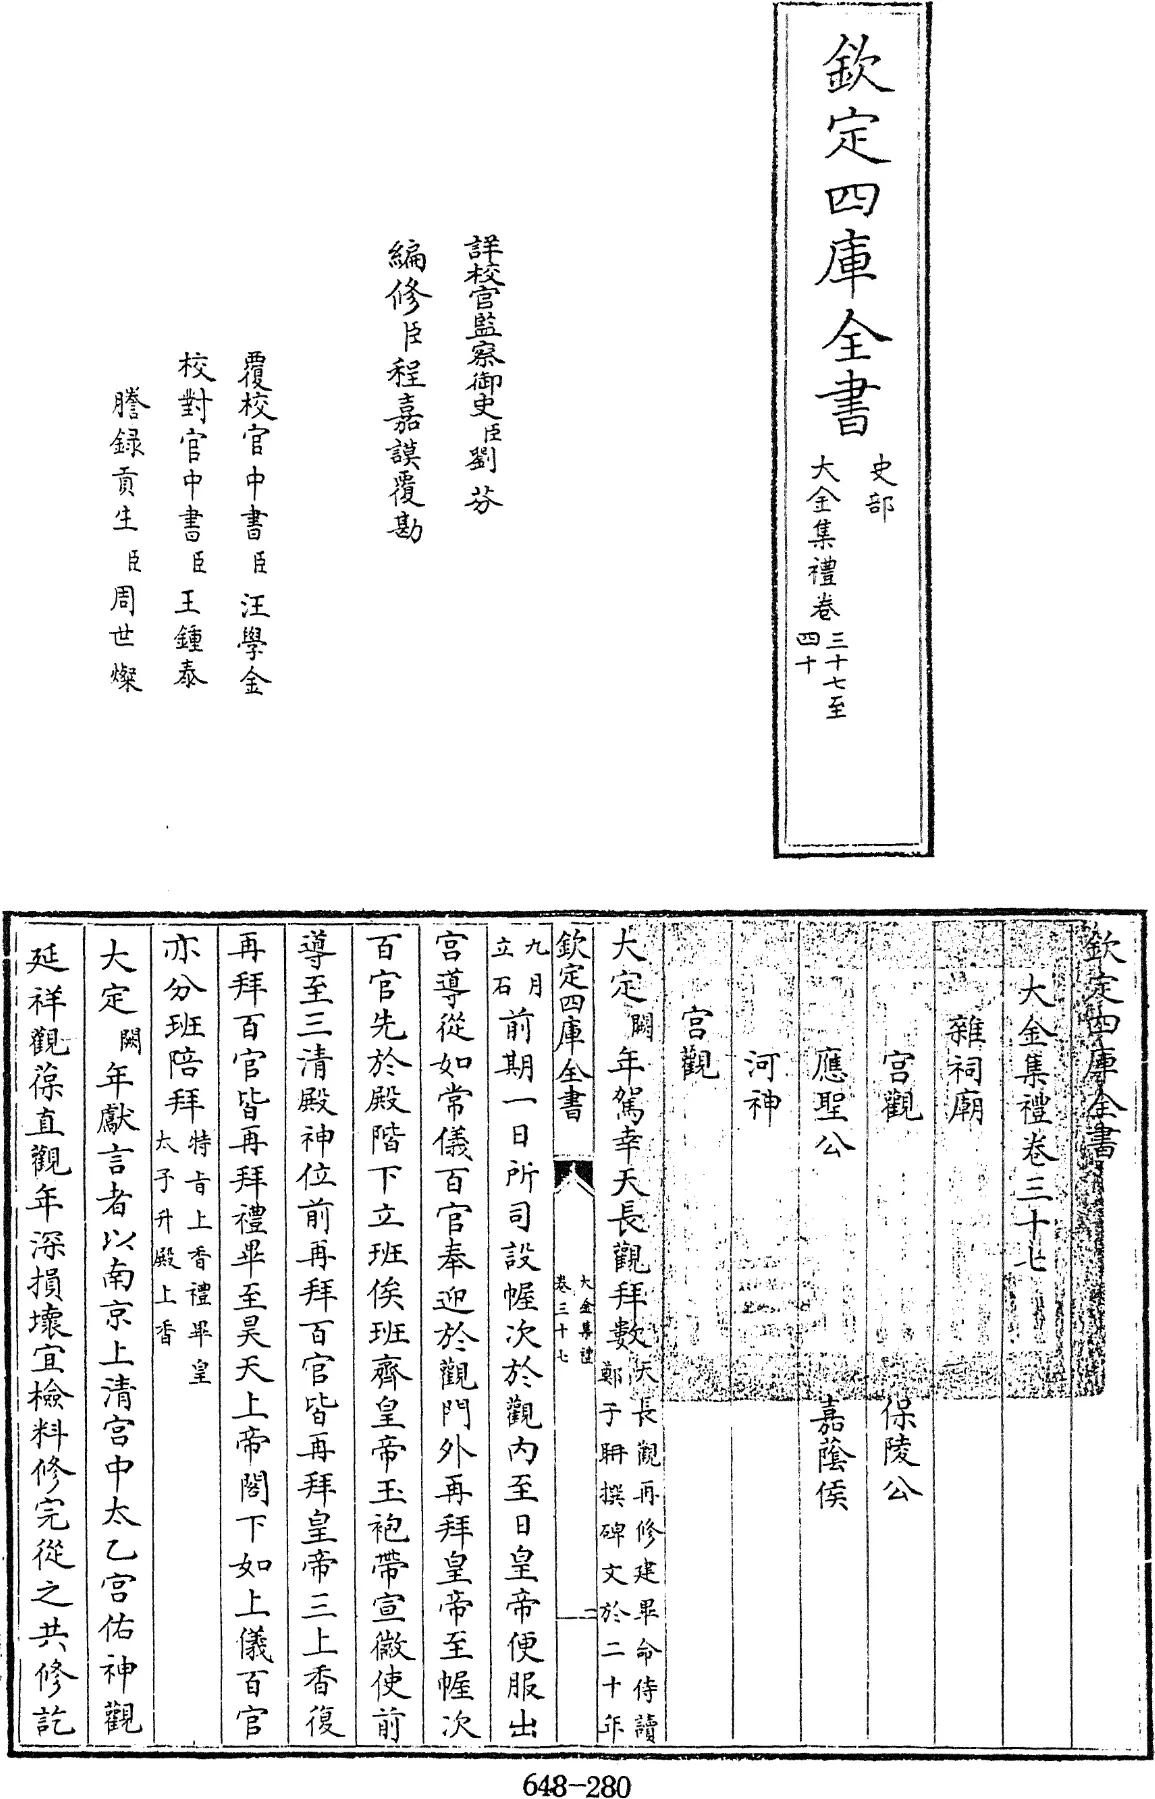 欽定四庫全書
史部
大金集禮卷三十七至四十
詳校官監察御史臣劉芬
編修臣程嘉謨覆勘
覆校官中書臣汪學金
校對官中書臣王鍾泰
謄録貢生臣周世燦
欽定四庫全書
大金集禮卷三十七
雜祠廟
宫觀 保陵公
應聖公 嘉蔭侯
河神
宫觀
大定闕年駕幸天長觀拜數天長觀再修建畢命侍讀鄭子聃撰碑文於二十年
欽定四庫全書 大金集禮卷三十七 二
九月立石前期一日所司設幄次於觀内至日皇帝便服出
宫導從如常儀百官奉迎於觀門外再拜皇帝至幄次
百官先於殿階下立班俟班齊皇帝玉袍帶宣徽使前
導至三清殿神位前再拜百官皆再拜皇帝三上香復
再拜百官皆再拜禮畢至昊天上帝閣下如上儀百官
亦分班陪拜特旨上香禮畢皇太子升殿上香
大定闕年獻言者以南京上清宫中太乙宫佑神觀
延祥觀葆直觀年深損壞宜檢料修完從之共修訖
648-280